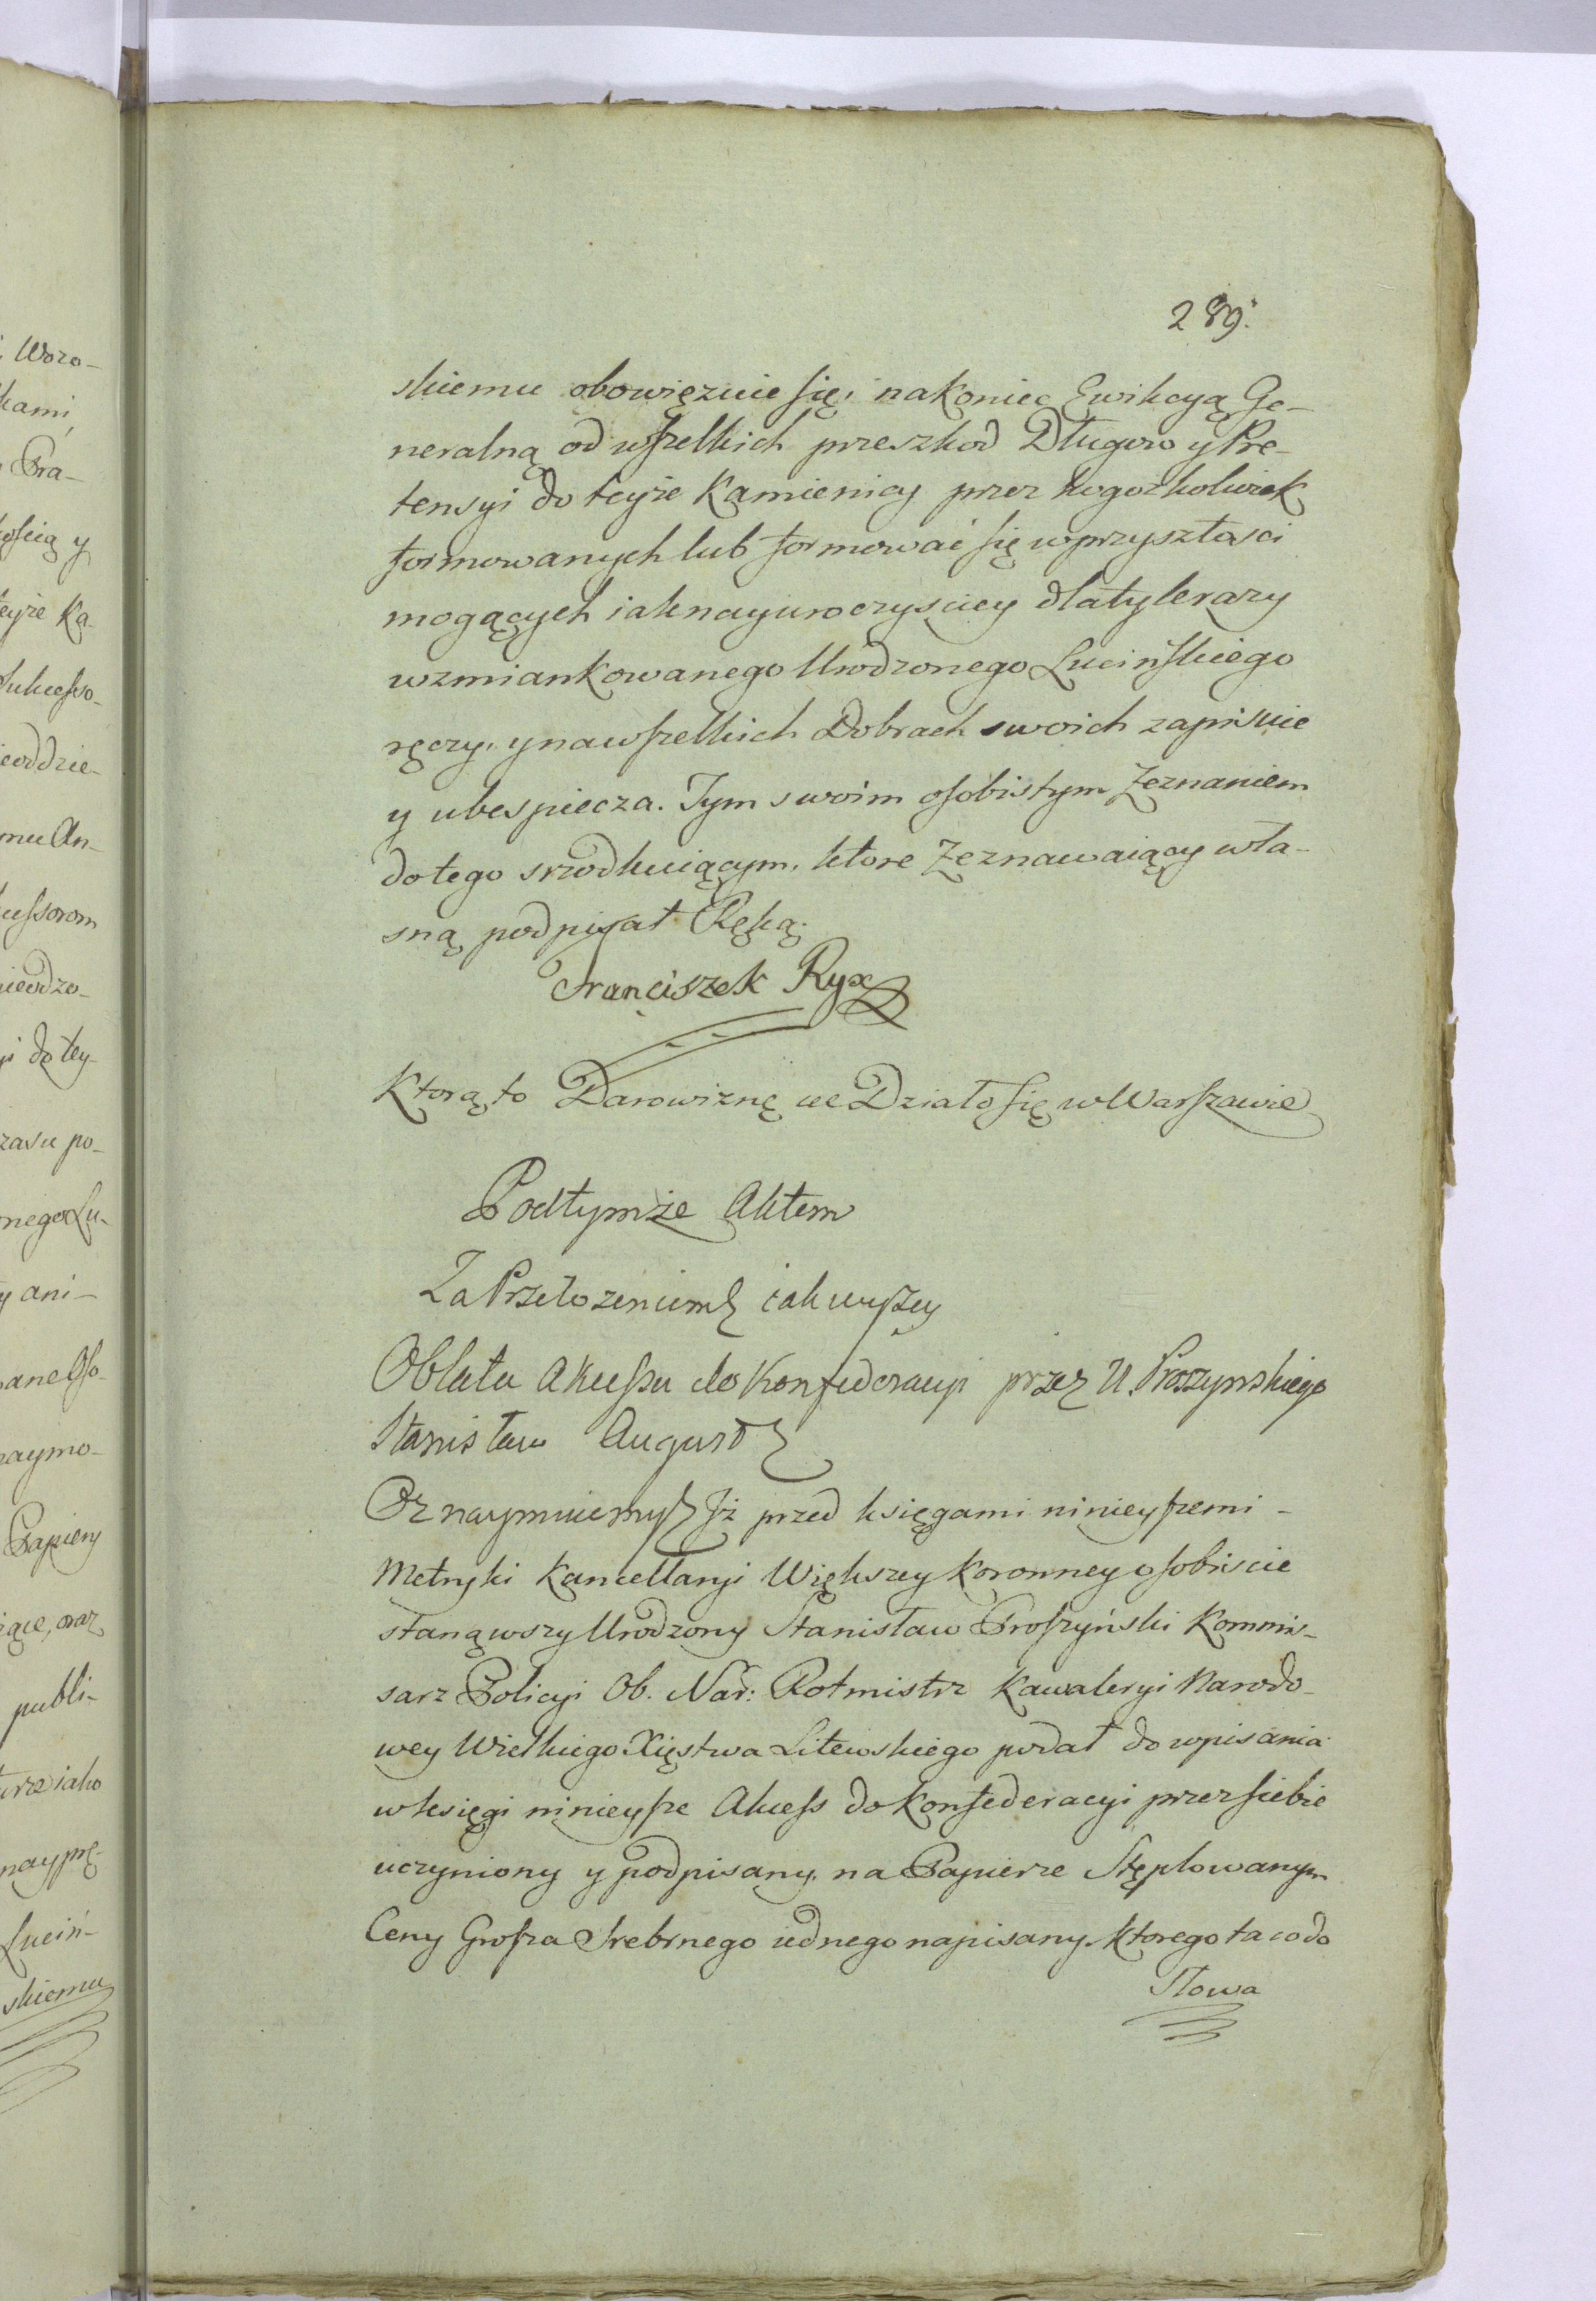 289.
skiemu obowięzuie się, nakoniec Ewikcyą Ge-
neralną od wszelkich przeszkod Długow y Pre-
tensyi do teyże Kamienicy przez kogożkolwiek
formowanych lub formować się wprzyszłosci
mogących iaknayuroczysciey dlatylerazy
wzmiankowanego Urodzonego Lucińskiego
ręczy, ynawszelkich Dobrach swoich zapisuie
y ubespiecza. Tym swoim osobistym Zeznaniem
dotego srzodkuiącym, ktore Zeznawaiący wła-
sną podpisał Ręką.
Franciszek Ryx
Ktorą to Darowiznę Działo się w Warszawie
Podtymże Aktem
Za Przełożeniem iak wyżey
Oblata Akcessu do Konfederacyi przez U. Proszynskiego
Stanisław August
Oznaymuiemy Iż przed księgami ninieyszemi -
Metryki Kancellaryi Większey Koronney osobiscie
stanąwszy Urodzony Stanisław Proszyński Kommis-
sarz Policyi Ob. Nar: Rotmistrz Kawaleryi Narodo-
wey Wielkiego Xięstwa Litewskiego podał do wpisania
wksięgi ninieysze Akcess do Konfederacyi przez siebie
uczyniony y podpisany, na Papierze Stęplowanym
Ceny Grosza Srebrnego iednego napisany, ktorego ta codo
Słowa
Woro-
kami,
Pra-
ością y
teyże Ka-
Sukcesso-
mu An-
cessorom
do tey-
zasu po-
nego Lu-
y ani-
ane Oso-
naymo-
Papiery
oraz
publi-
iako
Luciń-
skiemu